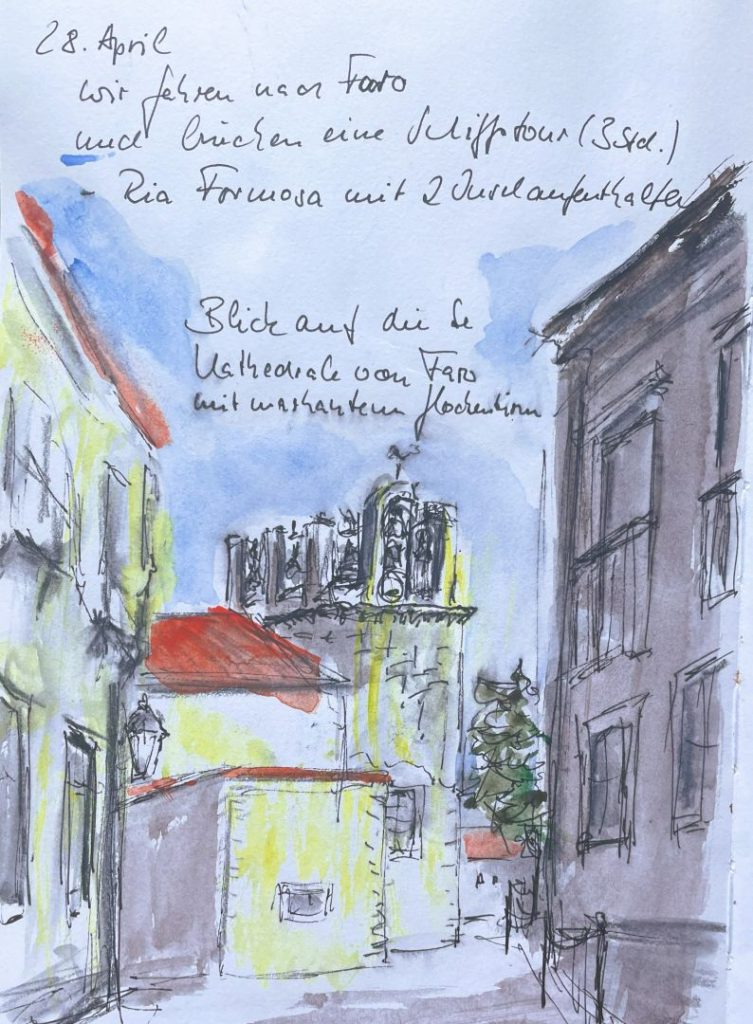 28. April
wir fahren nach Faro
und buchen eine Schiffstour (3 Std.)
- Ria Formosa mit 2 Inselaufenthalten
Blick auf die Se
Kathedrale von Faro
mit markantem Glockenturm